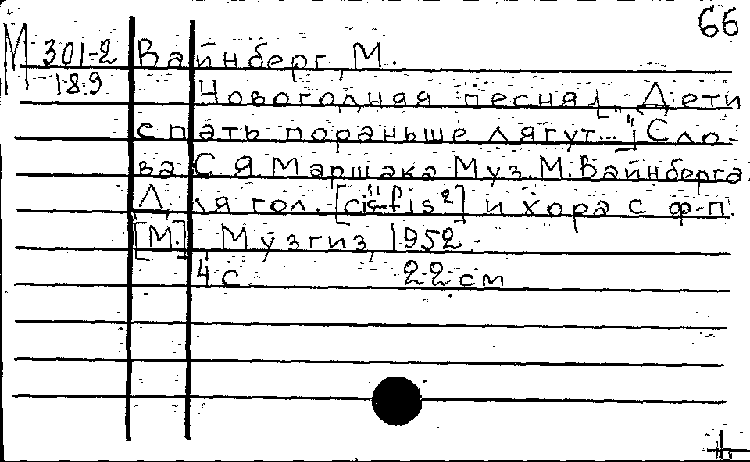 66
М 301-2
189
Вайнберг, М.
Новогодняя песня [„Дети
спать пораньше лягут..."] Сло-
ва С. Я. Маршака. Муз. М. Вайнберга.
Для гол. [cis"-fis²] и хора с ф-п.
[М.], Музгиз, 1952.
4 с. 22 см